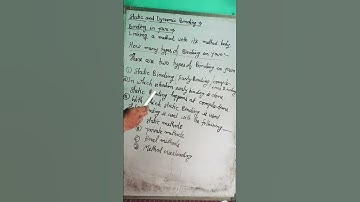 Static and Dynamic Binding →
Binding in Java →
Linking a method with its method body.
How many types of Binding in java
There are two types of Binding in java
① Static Binding / Early Binding / compile
In which situation early binding is done
Static Binding happens at compile time
With which static Binding is used
Binding is used with the following
① static methods
② private methods
③ final methods
④ Method overloading